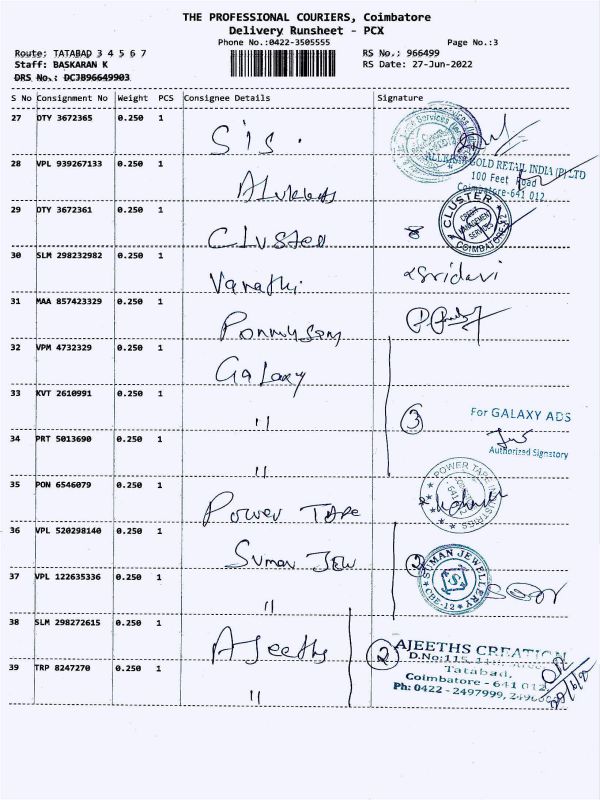 THE PROFESSIONAL COURIERS, Coimbatore
Delivery Runsheet - PCX
Phone No.:0422-3505555 Page No.:3
Route: TATABAD 3 4 5 6 7 RS No.: 966499
Staff: BASKARAN K RS Date: 27-Jun-2022
DRS No.: DCJB96649903
S No Consignment No Weight PCS Consignee Details Signature
27 DTY 3672365 0.250 1 SiS.
28 VPL 939267133 0.250 1
GOLD RETAIL INDIA (P) LTD
100 Feet Road
Coimbatore-641 012
29 DTY 3672361 0.250 1 Cluster
CLUSTER
CREDIT
MANAGEMENT
SERVICES
COIMBATORE-12
30 SLM 298232982 0.250 1 Vanathi Sridevi
31 MAA 857423329 0.250 1
32 VPM 4732329 0.250 1 Galaxy
33 KVT 2610991 0.250 1 " 3
For GALAXY ADS
34 PRT 5013690 0.250 1 "
Authorised Signatory
35 PON 6546079 0.250 1 Power Tape
POWER TAPE
36 VPL 520298140 0.250 1 Suman Jew
SUMAN JEWELLERY
S
CBE-12
37 VPL 122635336 0.250 1 "
38 SLM 298272615 0.250 1 Ajeeths 2
AJEETHS CREATION
D.No:115,
Tatabad,
Coimbatore - 641 012
Ph: 0422 - 2497999,
39 TRP 8247270 0.250 1 "